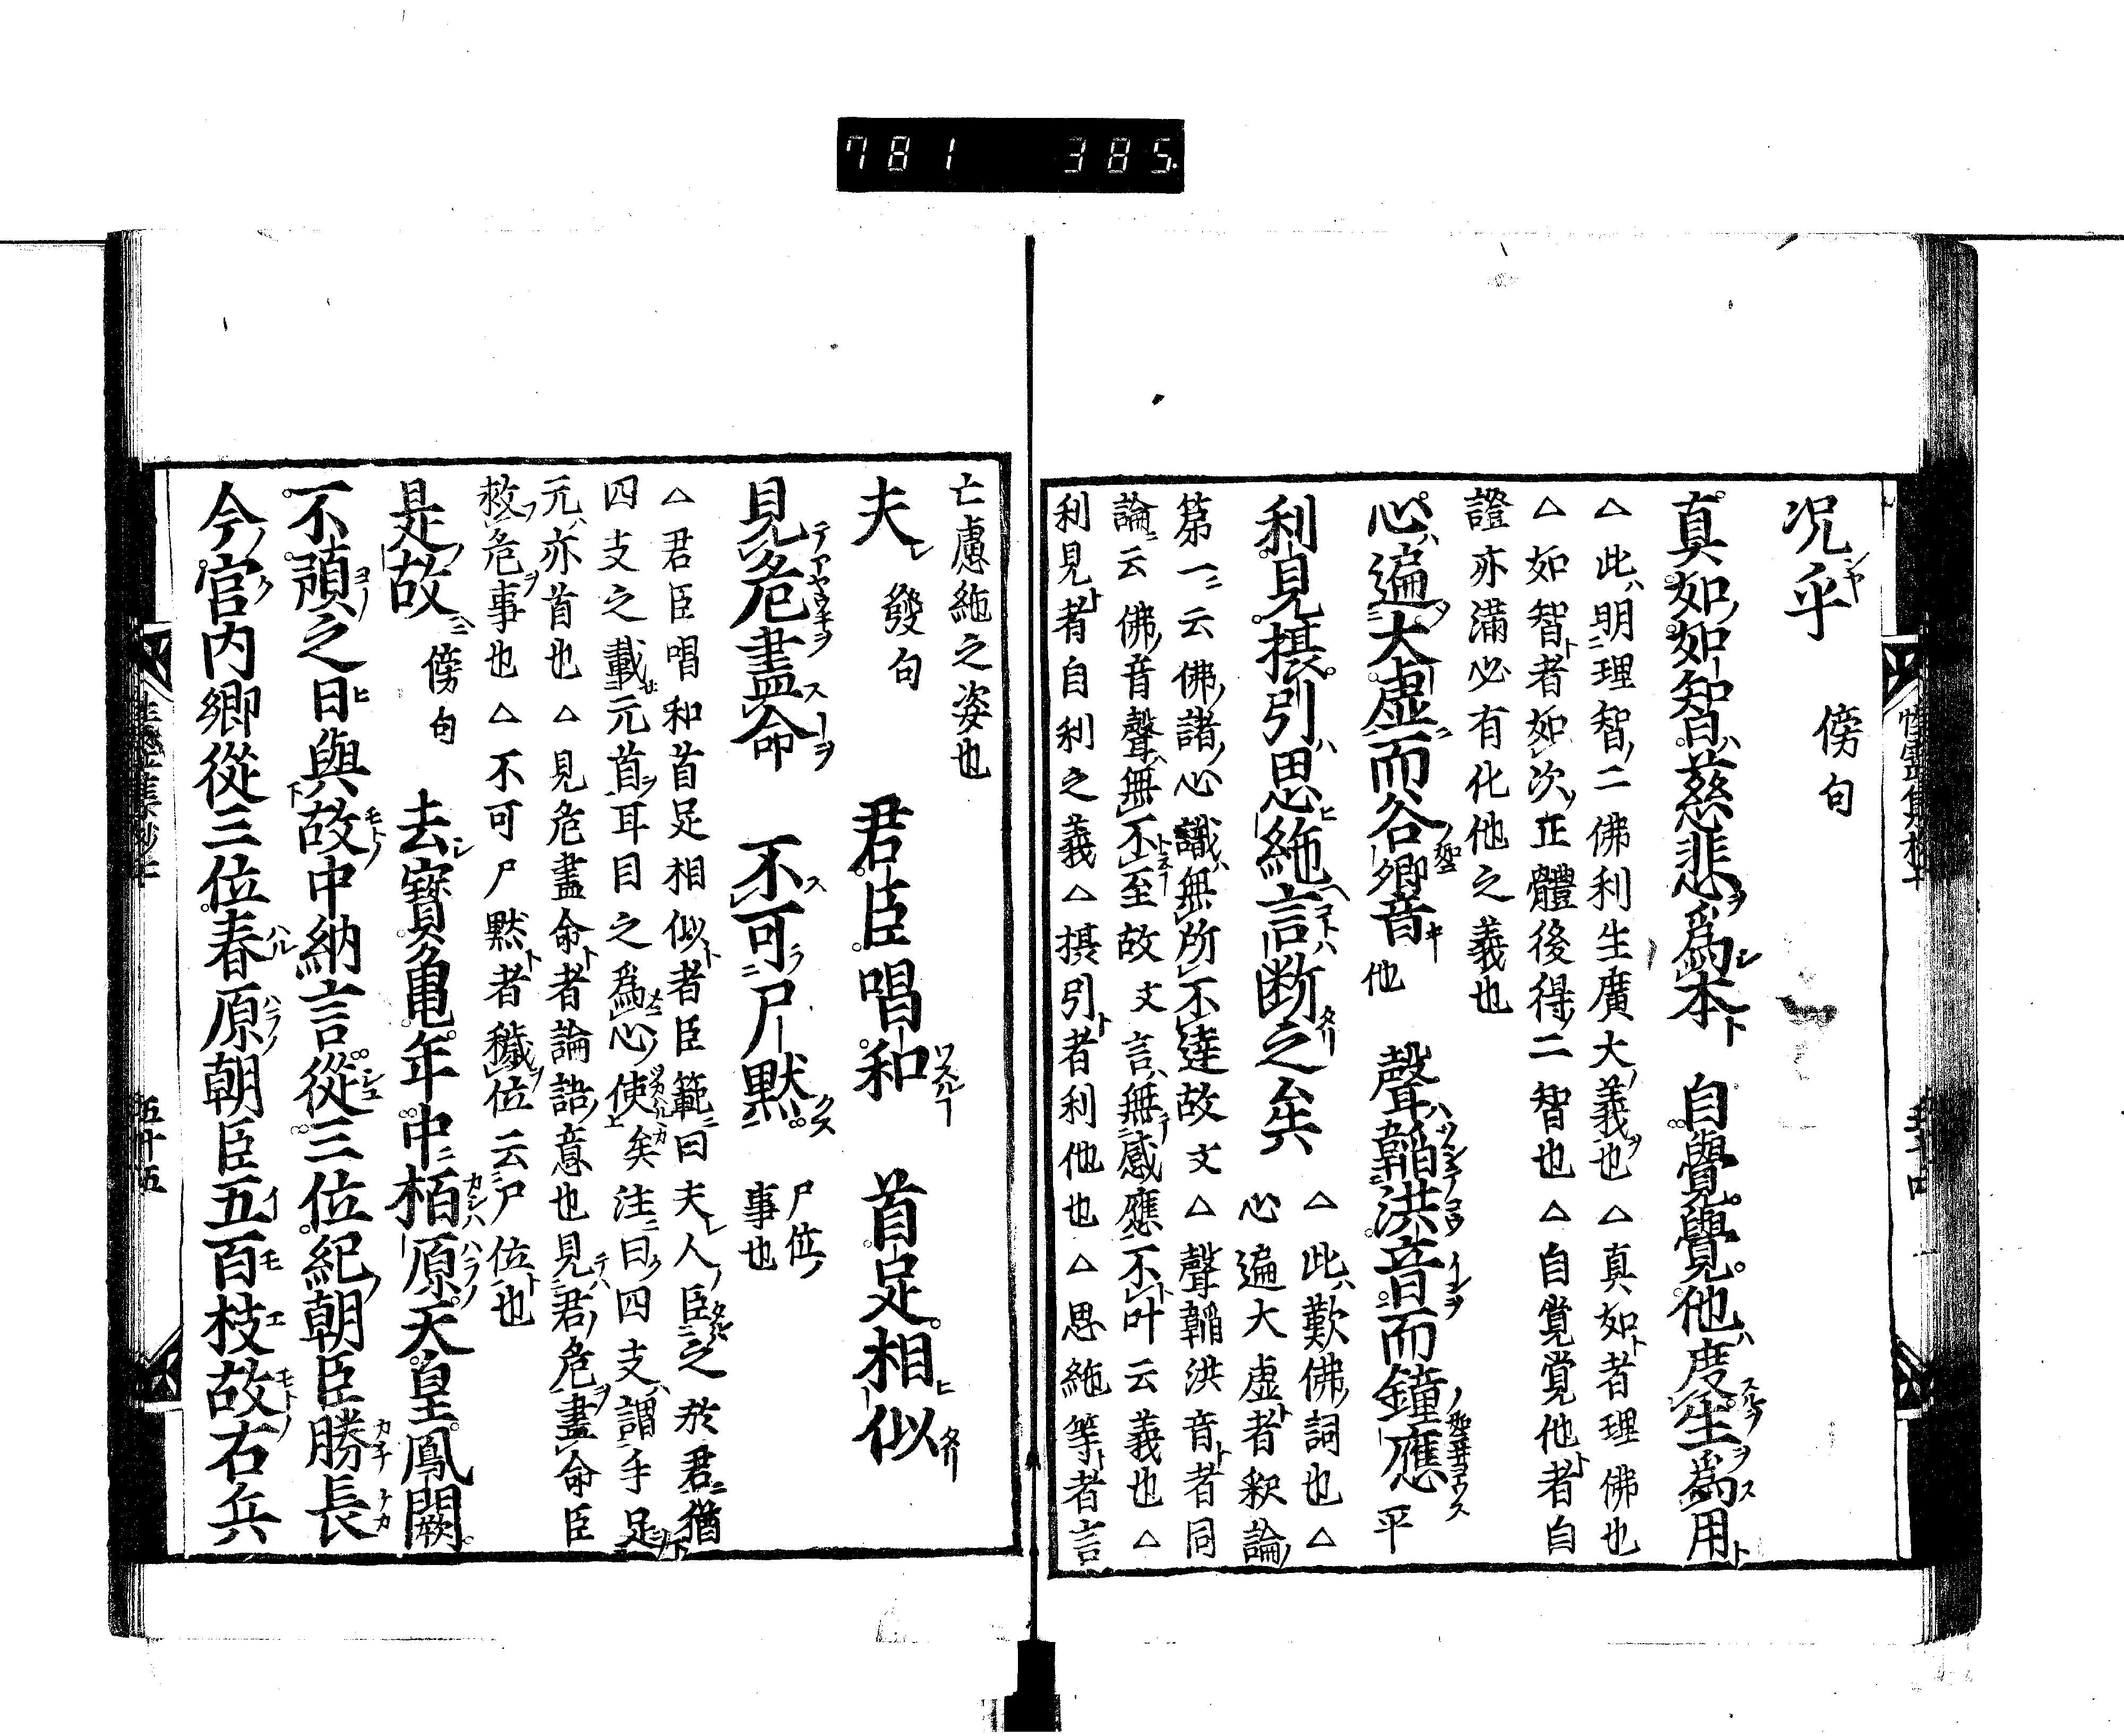 781 385
况乎 傍句
真如如智慈悲爲本 自覺覺他度生爲用
△此明理智二佛利生廣大義也△真如者理佛也
△如智者如次正體後得二智也△自覚覚他者自
證亦滿必有化他之義也
心遍大虚而谷響音 他 聲韜洪音而鐘應 平
利見摂引思絁言断之矣 △此歎佛詞也△
心遍大虚者釈論
第一云佛諸心識無所不達故文△聲韜洪音者同
論云佛音聲無不至故文言無感應不叶云義也△
利見者自利之義△摂引者利他也△思絁等者言
亡慮絁之姿也
夫 發句 君臣唱和 首足相似
見危盡命 不可尸黙 尸位
事也
△君臣唱和首足相似者臣範曰夫人臣之於君猶
四支之載元首耳目之爲心使矣注曰四支謂手足
元亦首也△見危盡命者論語意也見君危盡命臣
救危事也△不可尸黙者穢位云尸位也
是故 傍句 去寳亀年中栢原天皇鳳闕
不豫之日與故中納言從三位紀朝臣勝長
今官内卿從三位春原朝臣五百枝故右兵
五十五